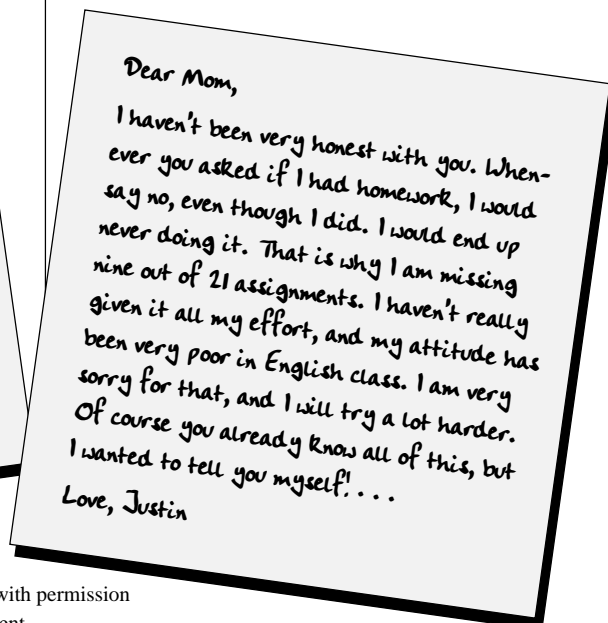 Dear Mom,
I haven't been very honest with you. When-
ever you asked if I had homework, I would
say no, even though I did. I would end up
never doing it. That is why I am missing
nine out of 21 assignments. I haven't really
given it all my effort, and my attitude has
been very poor in English class. I am very
sorry for that, and I will try a lot harder.
Of course you already know all of this, but
I wanted to tell you myself! . . .
Love, Justin
with permission